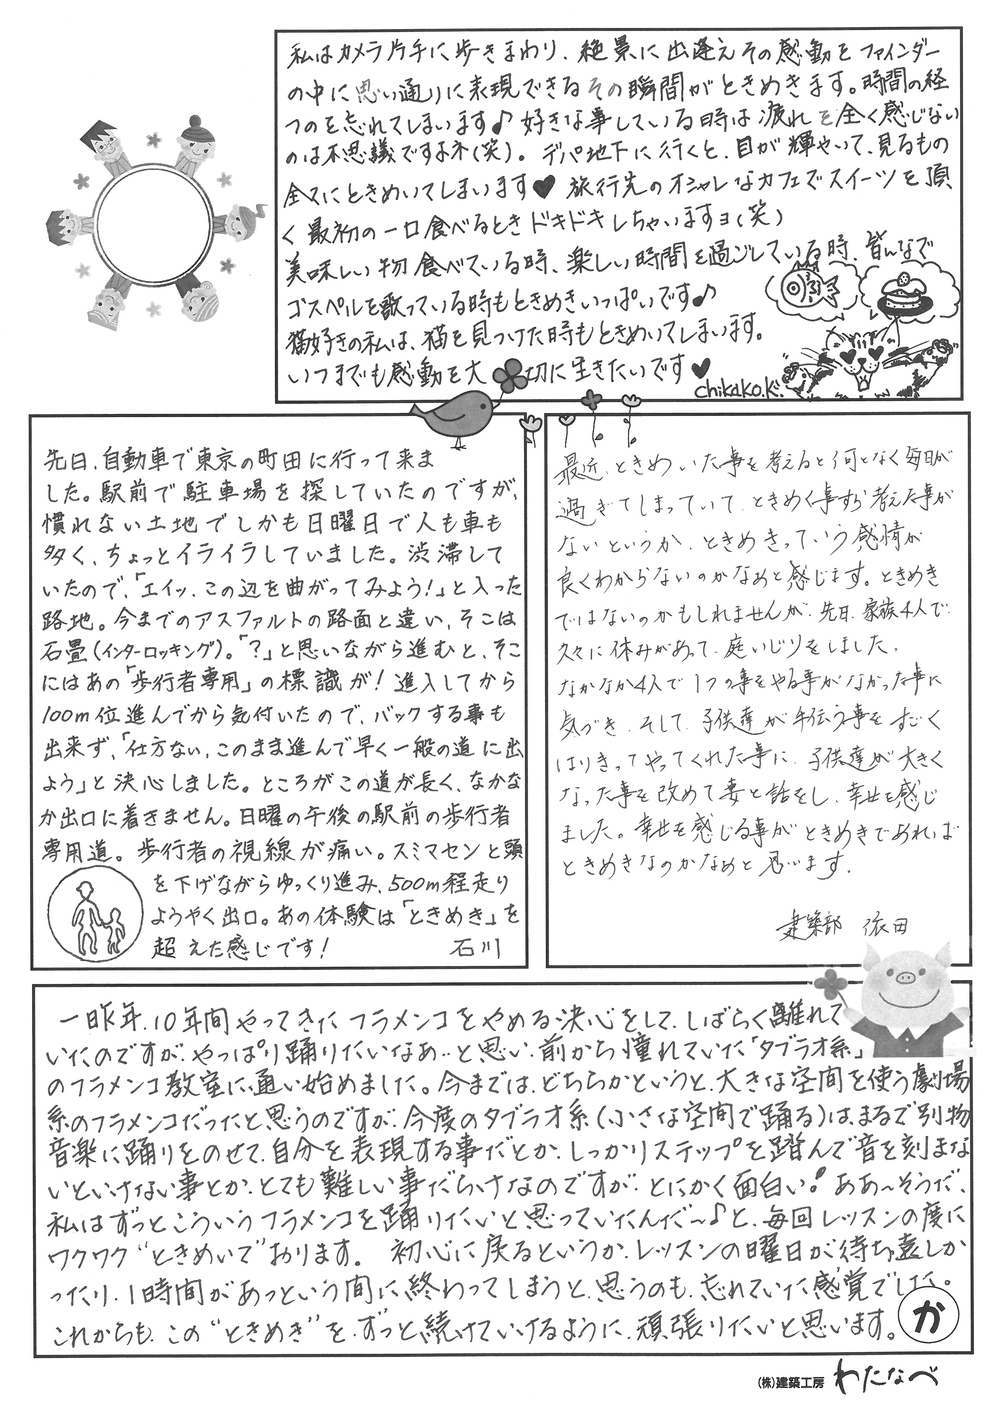 私はカメラ片手に歩きまわり、絶景に出逢えその感動をファインダー
の中に思い通りに表現できるその瞬間がときめきます。時間の経
つのを忘れてしまいます♪ 好きな事している時は疲れを全く感じない
のは不思議ですよネ(笑)。デパ地下に行くと、目が輝やいて、見るもの
全てにときめいてしまいます♥ 旅行先のオシャレなカフェでスイーツを頂
く最初の一口食べるときドキドキしちゃいますヨ(笑)
美味しい物食べている時、楽しい時間を過ごしている時、皆んなで
ゴスペルを歌っている時もときめきいっぱいです♪
猫好きの私は、猫を見つけた時もときめいてしまいます。
いつまでも感動を大切に生きたいです♥
chikako.K.
先日、自動車で東京の町田に行って来ま
した。駅前で駐車場を探していたのですが、
慣れない土地でしかも日曜日で人も車も
多く、ちょっとイライラしていました。渋滞して
いたので、「エイッ、この辺を曲がってみよう!」と入った
路地。今までのアスファルトの路面と違い、そこは
石畳(インターロッキング)。「?」と思いながら進むと、そこ
にはあの「歩行者専用」の標識が! 進入してから
100m位進んでから気付いたので、バックする事も
出来ず、「仕方ない、このまま進んで早く一般の道に出
よう」と決心しました。ところがこの道が長く、なかな
か出口に着きません。日曜の午後の駅前の歩行者
専用道。歩行者の視線が痛い。スミマセンと頭
を下げながらゆっくり進み、500m程走り
ようやく出口。あの体験は「ときめき」を
超えた感じです! 石川
最近、ときめいた事を考えると何となく毎日が
過ぎてしまっていて、ときめく事すら考えた事が
ないというか、ときめきっていう感情が
良くわからないのかなぁと感じます。ときめき
ではないのかもしれませんが、先日、家族4人で
久々に休みがあって、庭いじりをしました。
なかなか4人で1つの事をやる事がなかった事に
気づき、そして、子供達が手伝う事をすごく
はりきってやってくれた事に、子供達が大きく
なった事を改めて妻と話をし、幸せを感じ
ました。幸せを感じる事がときめきであれば
ときめきなのかなぁと思います。
建築部 依田
一昨年、10年間やってきたフラメンコをやめる決心をして、しばらく離れて
いたのですが、やっぱり踊りたいなあ‥と思い、前から憧れていた「タブラオ系」
のフラメンコ教室に通い始めました。今までは、どちらかというと、大きな空間を使う劇場
系のフラメンコだったと思うのですが、今度のタブラオ系(小さな空間で踊る)は、まるで別物
音楽に踊りをのせて、自分を表現する事だとか、しっかりステップを踏んで音を刻まな
いといけない事とか、とても難しい事だらけなのですが、とにかく面白い! ああ~そうだ、
私はずっとこういうフラメンコを踊りたいと思っていたんだ~♪と、毎回レッスンの度に
ワクワク"ときめいて"おります。 初心に戻るというか、レッスンの曜日が待ち遠しか
ったり、1時間があっという間に終わってしまうと、思うのも、忘れていた感覚でした。
これからも、この"ときめき"を、ずっと続けていけるように、頑張りたいと思います。 か
(株)建築工房 わたなべ